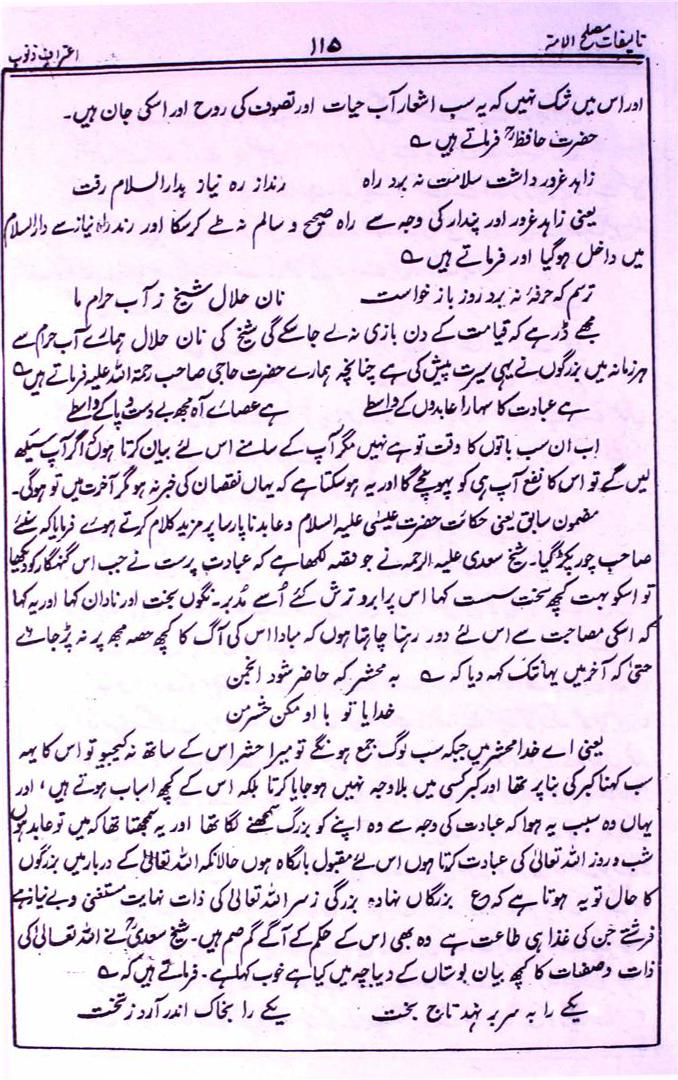 تالیفات مصلح الامتہ ۱۱۵ اعترافِ ذنوب
اور اس میں شک نہیں کہ یہ سب اشعار آب حیات اور تصوف کی روح اور اسکی جان ہیں۔
حضرت حافظؒ فرماتے ہیں ؎
زاہد غرور داشت سلامت نہ برد راہ رند از رہ نیاز بدار السلام رفت
یعنی زاہد غرور اور پندار کی وجہ سے راہ صحیح و سالم نہ طے کر سکا اور رند راہ نیاز سے دارالسلام
میں داخل ہوگیا اور فرماتے ہیں ؎
ترسم کہ حرفۂ نہ برد روز باز خواست نان حلال شیخ ز آب حرام ما
مجھے ڈر ہے کہ قیامت کے دن بازی نہ لے جاسکے گی شیخ کی نان حلال ہمارے آب حرام سے
ہر زمانہ میں بزرگوں نے یہی سیرت پیش کی ہے چنانچہ ہمارے حضرت حاجی صاحب رحمۃ اللہ علیہ فرماتے ہیں ؎
ہے عبادت کا سہارا عابدوں کے واسطے ہے عصائے آہ مجھ بے دست و پا کے واسطے
اب ان سب باتوں کا وقت تو ہے نہیں مگر آپ کے سامنے اس لئے بیان کرتا ہوں کہ اگر آپ سیکھ
لیں گے تو اس کا نفع آپ ہی کو پہونچے گا اور یہ ہوسکتا ہے کہ یہاں نقصان کی خبر نہ ہو مگر آخرت میں تو ہوگی۔
مضمون سابق یعنی حکائت حضرت عیسٰی علیہ السلام و عابد نا پارسا پر مزید کلام کرتے ہوئے فرمایا کہ سنئے
صاحب چور پکڑ گیا۔ شیخ سعدی علیہ الرحمہ نے جو قصہ لکھا ہے کہ عبادت پرست نے جب اس گنہگار کو دیکھا
تو اسکو بہت کچھ سخت سست کہا اس پر ابرو ترش کئے اُسے مدبر۔ نگوں بخت اور نادان کہا اور یہ کہا
کہ اسکی مصاحبت سے اس لئے دور رہنا چاہتا ہوں کہ مبادا اس کی آگ کا کچھ حصہ مجھ پر نہ پڑ جائے
حتیٰ کہ آخر میں یہانتک کہہ دیا کہ ؎ بہ محشر کہ حاضر شود انجمن
خدایا تو با او مکن حشر من
یعنی اے خدا محشر میں جبکہ سب لوگ جمع ہونگے تو میرا حشر اس کے ساتھ نہ کیجیو تو اس کا یہ
سب کہنا کبر کی بنا پر تھا اور کبر کسی میں بلاوجہ نہیں ہوجایا کرتا بلکہ اس کے کچھ اسباب ہوتے ہیں، اور
یہاں وہ سبب یہ ہوا کہ عبادت کی وجہ سے وہ اپنے کو بزرگ سمجھنے لگا تھا اور یہ سمجھتا تھا کہ میں تو عابد ہوں
شب و روز اللہ تعالیٰ کی عبادت کرتا ہوں اس لئے مقبول بارگاہ ہوں حالانکہ اللہ تعالیٰ کے دربار میں بزرگوں
کا حال تو یہ ہوتا ہے کہ ع بزرگاں نہادہ بزرگی ز سر اللہ تعالیٰ کی ذات نہایت مستغنی و بے نیاز ہے
فرشتے جن کی غذا ہی طاعت ہے وہ بھی اس کے حکم کے آگے گم صم ہیں۔ شیخ سعدیؒ نے اللہ تعالیٰ کی
ذات و صفات کا کچھ بیان بوستاں کے دیباچہ میں کیا ہے خوب کہا ہے۔ فرماتے ہیں کہ ؎
یکے را بہ سر بر نہد تاج بخت یکے را بخاک اندر آرد ز تخت